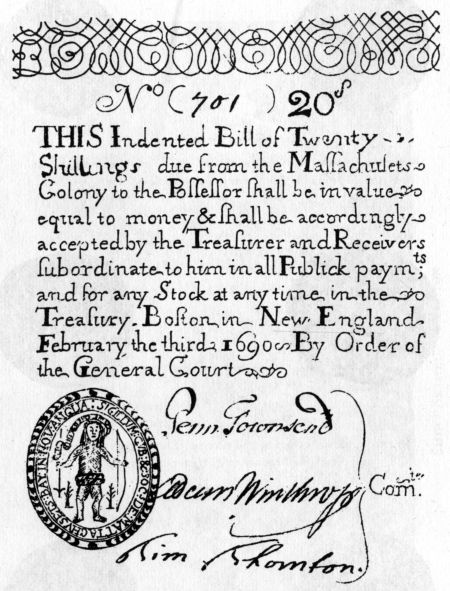 No (701) 20s
THIS Indented Bill of Twenty
Shillings due from the Maſſachuſets
Colony to the Poſſeſſor ſhall be in value
equal to money & ſhall be accordingly
accepted by the Treaſurer and Receivers
ſubordinate to him in all Publick paymts;
and for any Stock at any time in the
Treaſury. Boſton in New England
February the third 1690 By Order of
the General Court
Penn Townsend
Adam Winthrop Comtee
Tim Thornton.